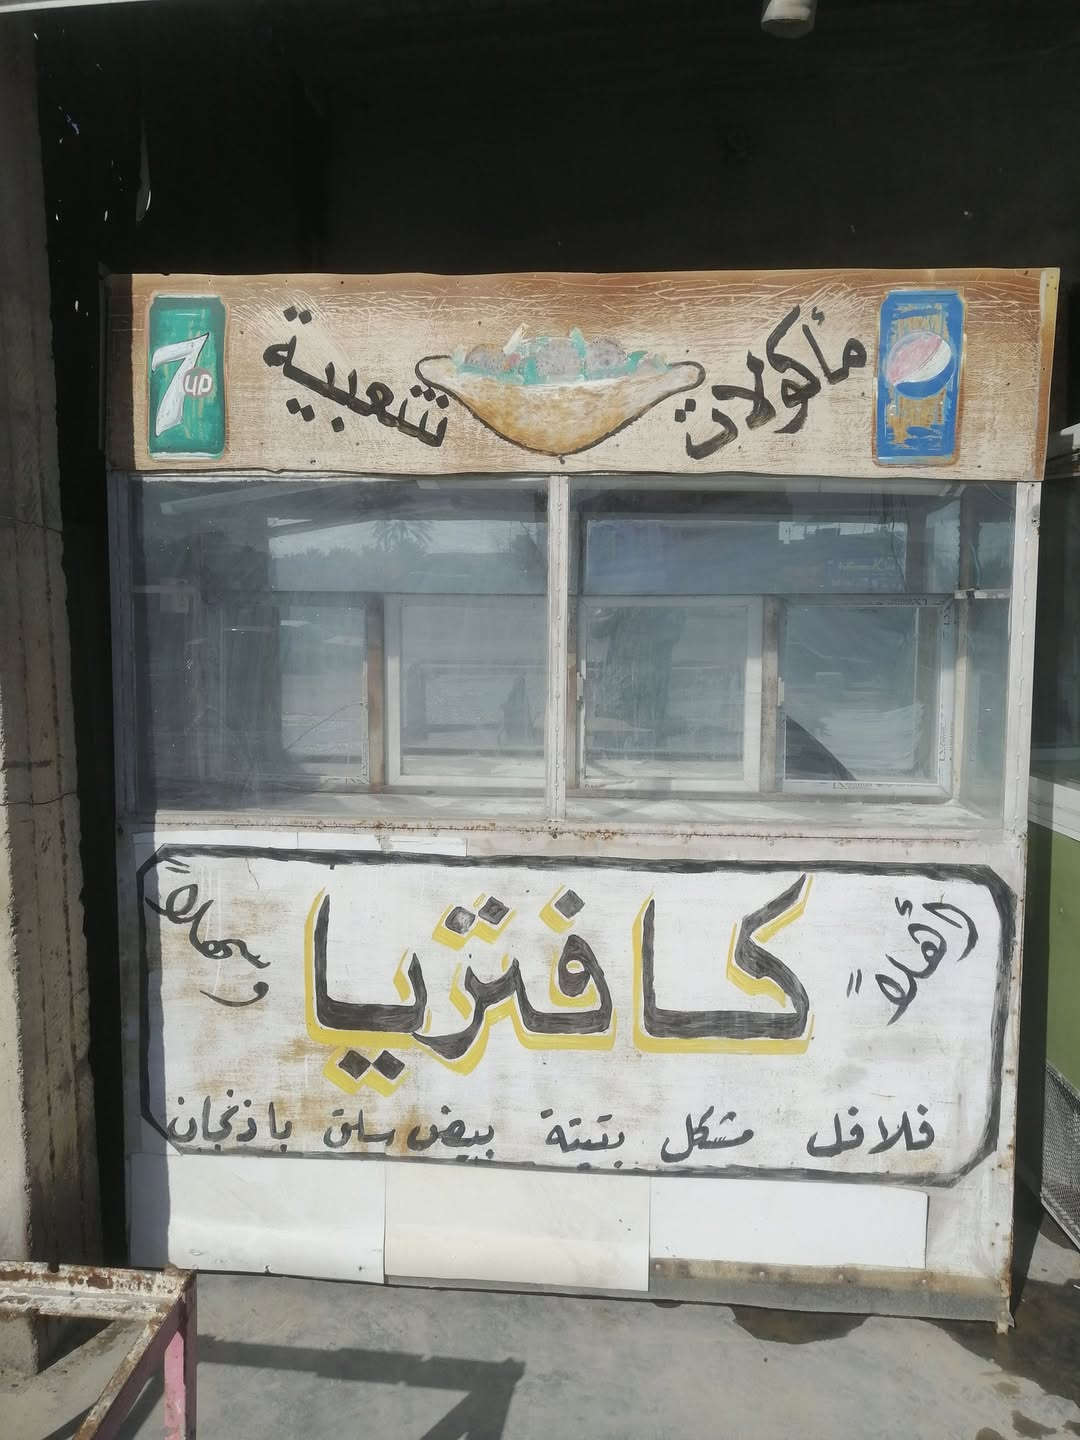 مأكولات شعبية
7up
أهلاً
وسهلاً
كافتريا
فلافل مشكل بتيتة بيض سلق باذنجان